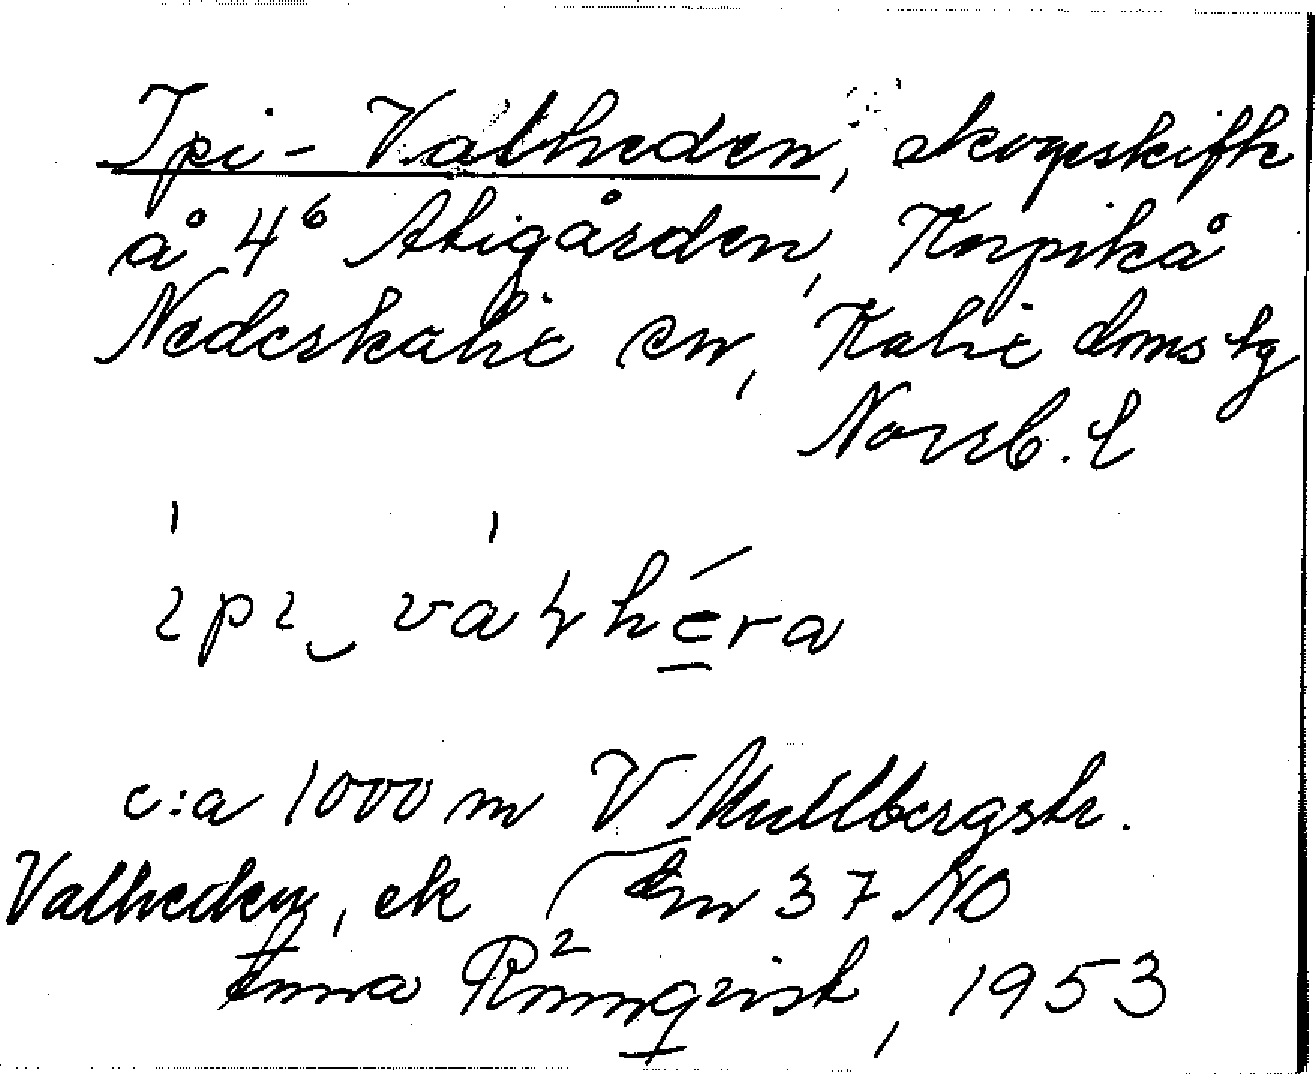 Ipi-Valheden, skogsskifte
å 4⁶ Stigården, Korpikå
Nederkalix sn, Kalix doms lg
Norrb. l
ɩpɩ‿va hhéra
c:a 1000 m V Mullbergstr.
Valheden, ek 37 NO
Anna Rönnqvist, 1953